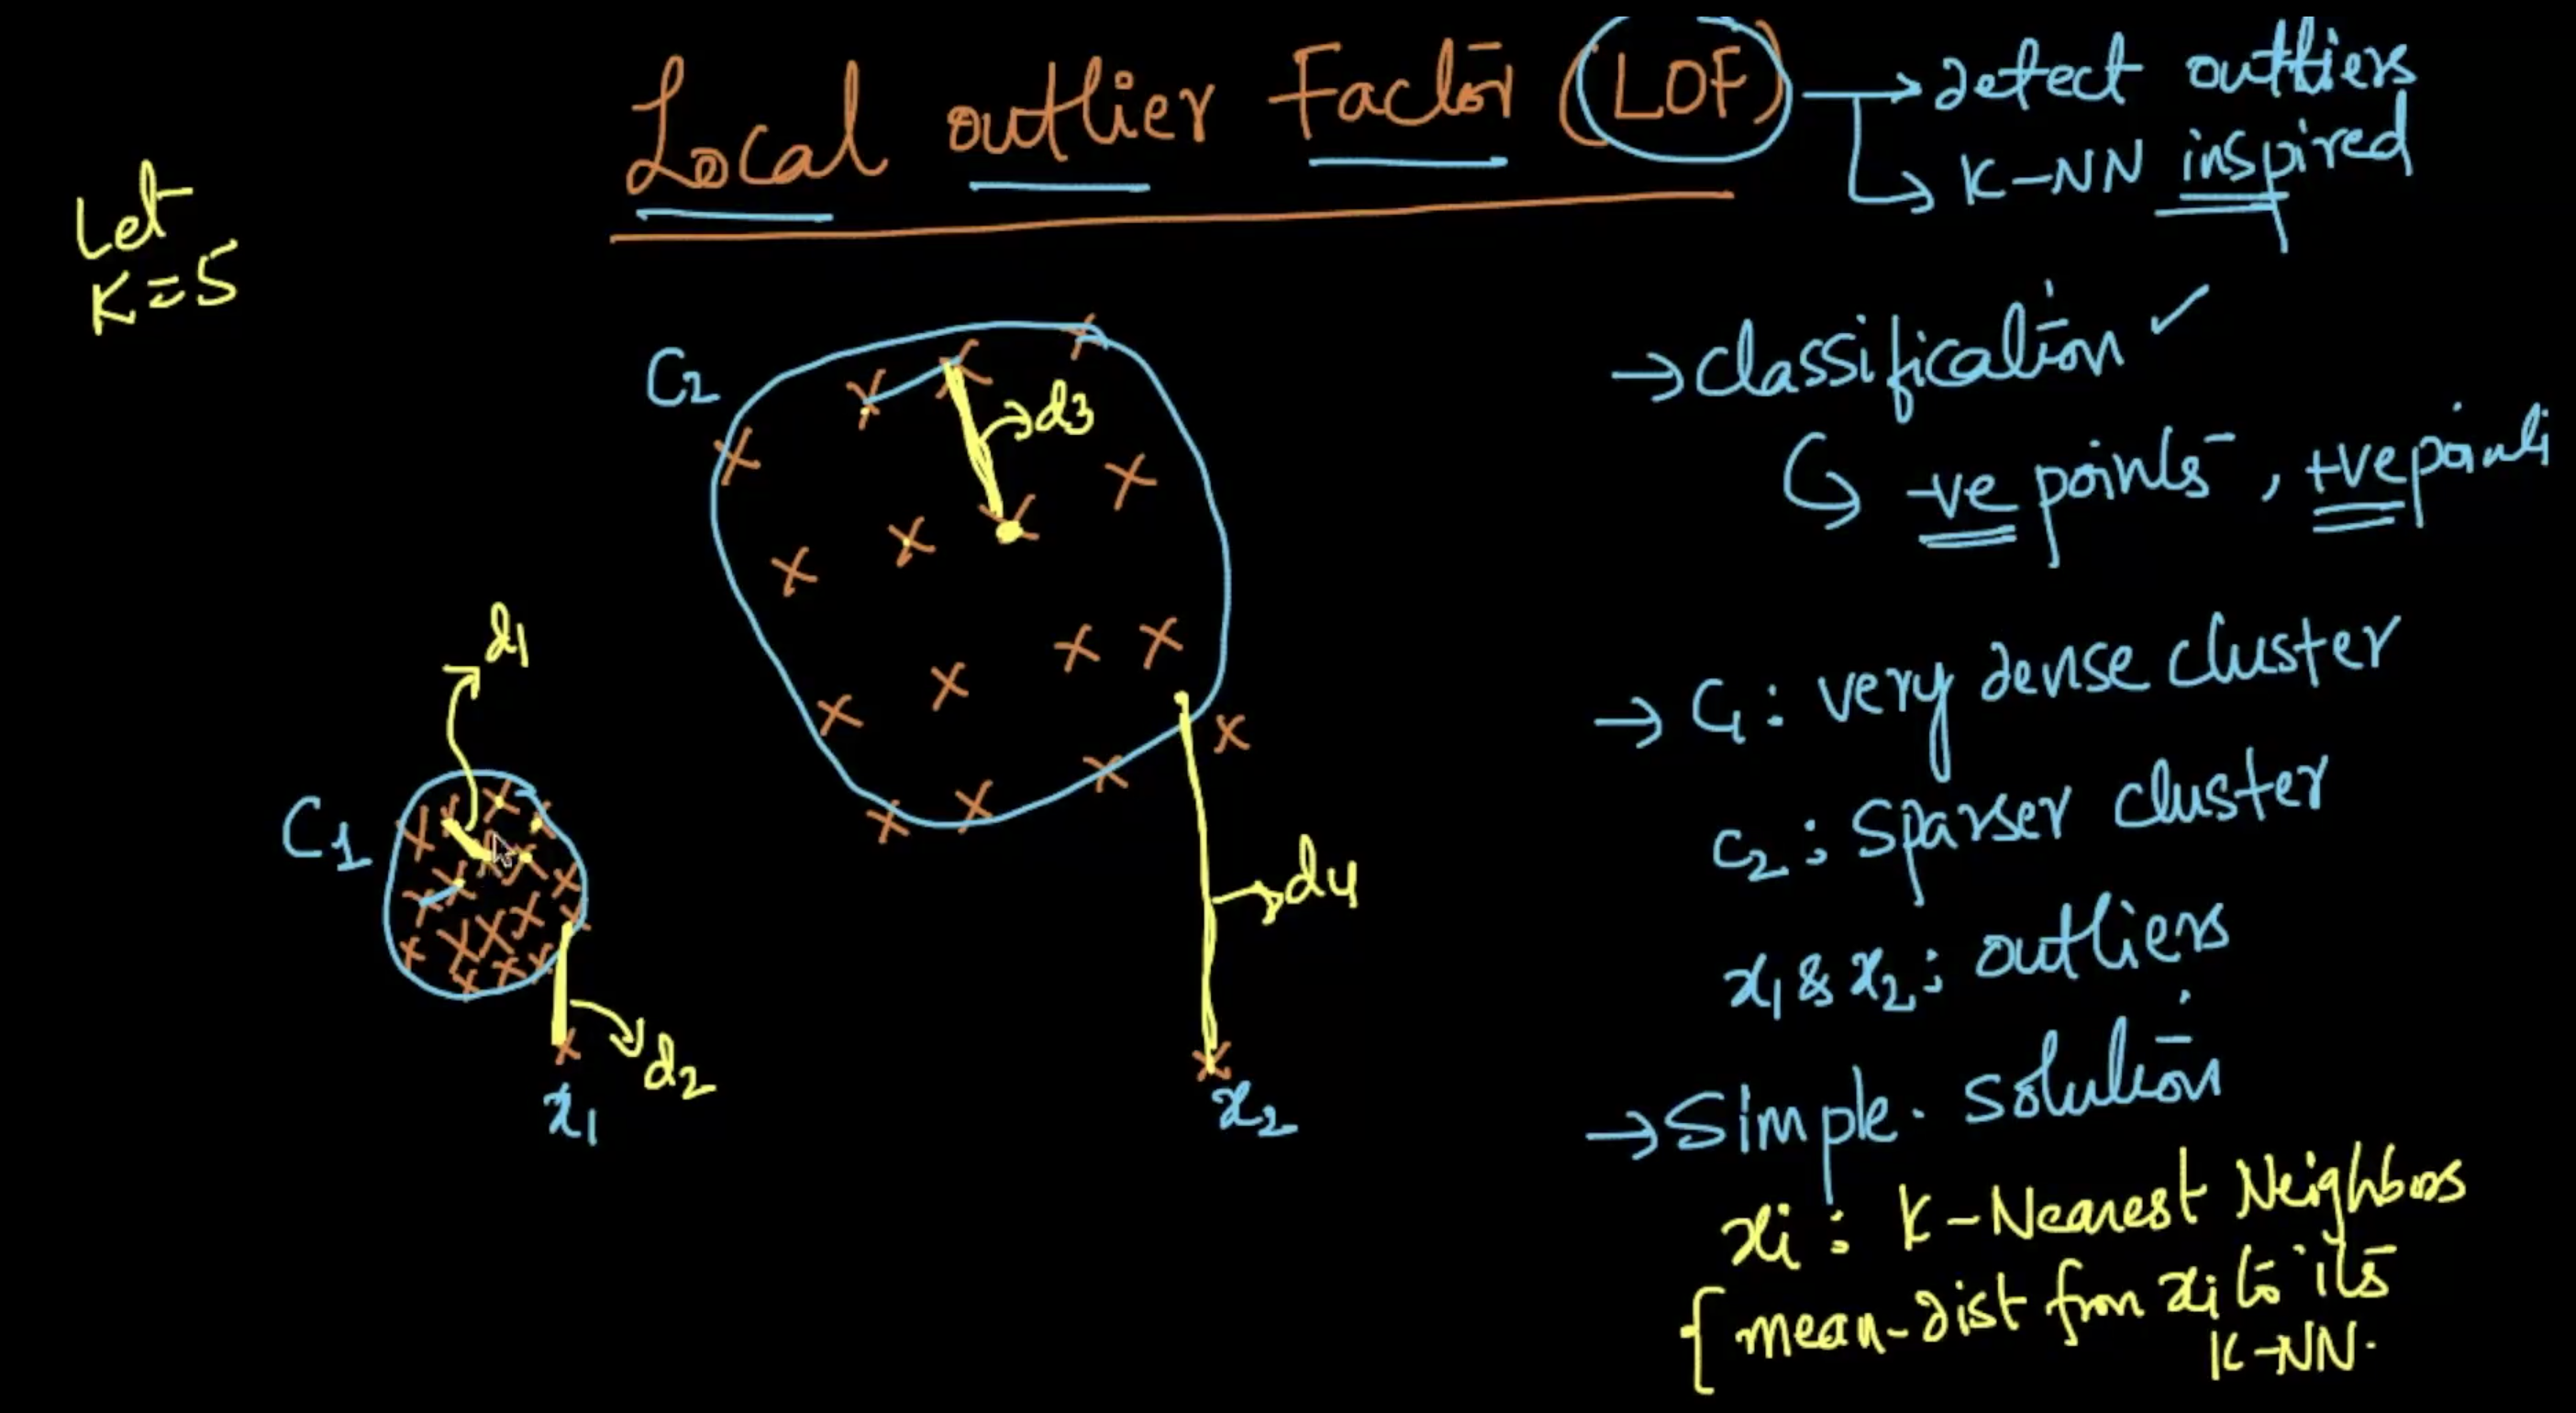 Local outlier Factor (LOF) → detect outliers
→ K-NN inspired
Let
K=5
→ classification ✓
↳ -ve points, +ve points
C2
d3
→ C1: very dense cluster
C2: Sparser cluster
x1 & x2: outliers
d1
C1
d4
d2
x1
x2
→ Simple solution
xi: K-Nearest Neighbors
{ mean-dist from xi to its
K-NN.